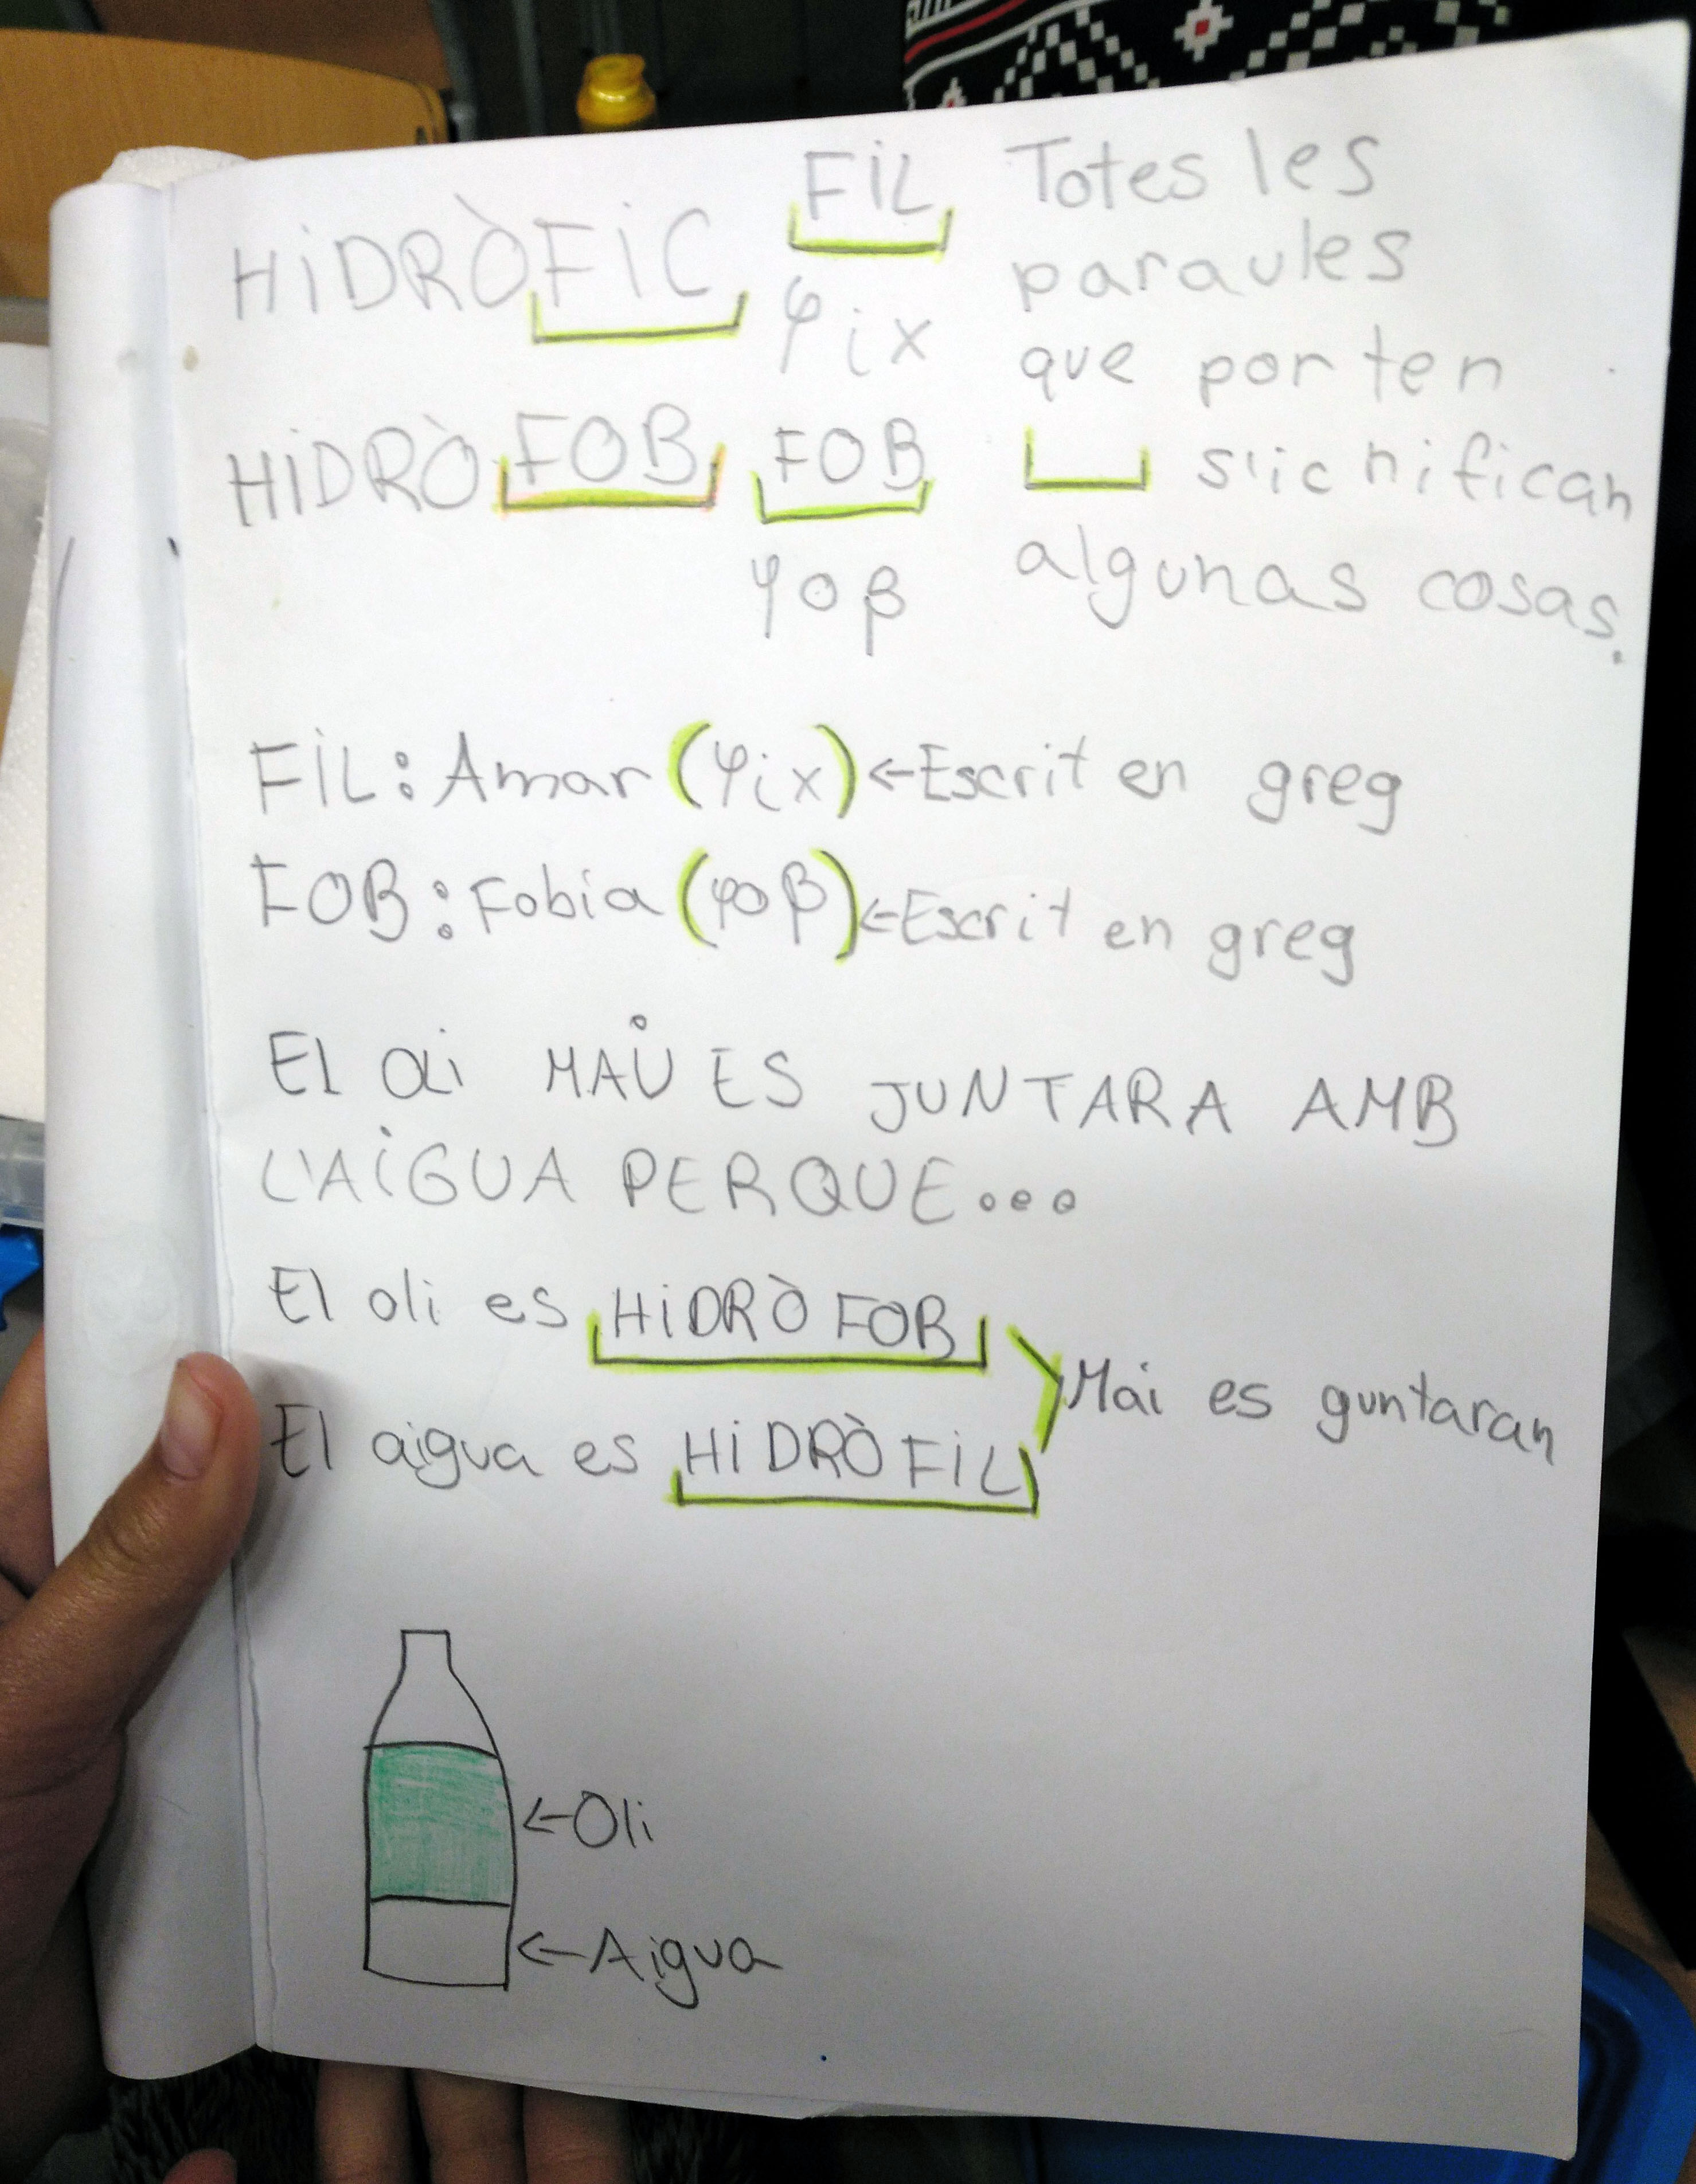 HiDRÒFiC
FiL
φix
HiDRÒFOB
FOB
φοβ
Totes les
paraules
que porten
s'ic nifican
algunas cosas.
FiL: Amar (φix) ←Escrit en greg
FOB: Fobia (φοβ) ←Escrit en greg
El oli MAU ES JUNTARA AMB
L'AiGUA PERQUE...
El oli es HiDRÒFOB
El aigua es HiDRÒFiL
Mai es guntaran
←Oli
←Aigua